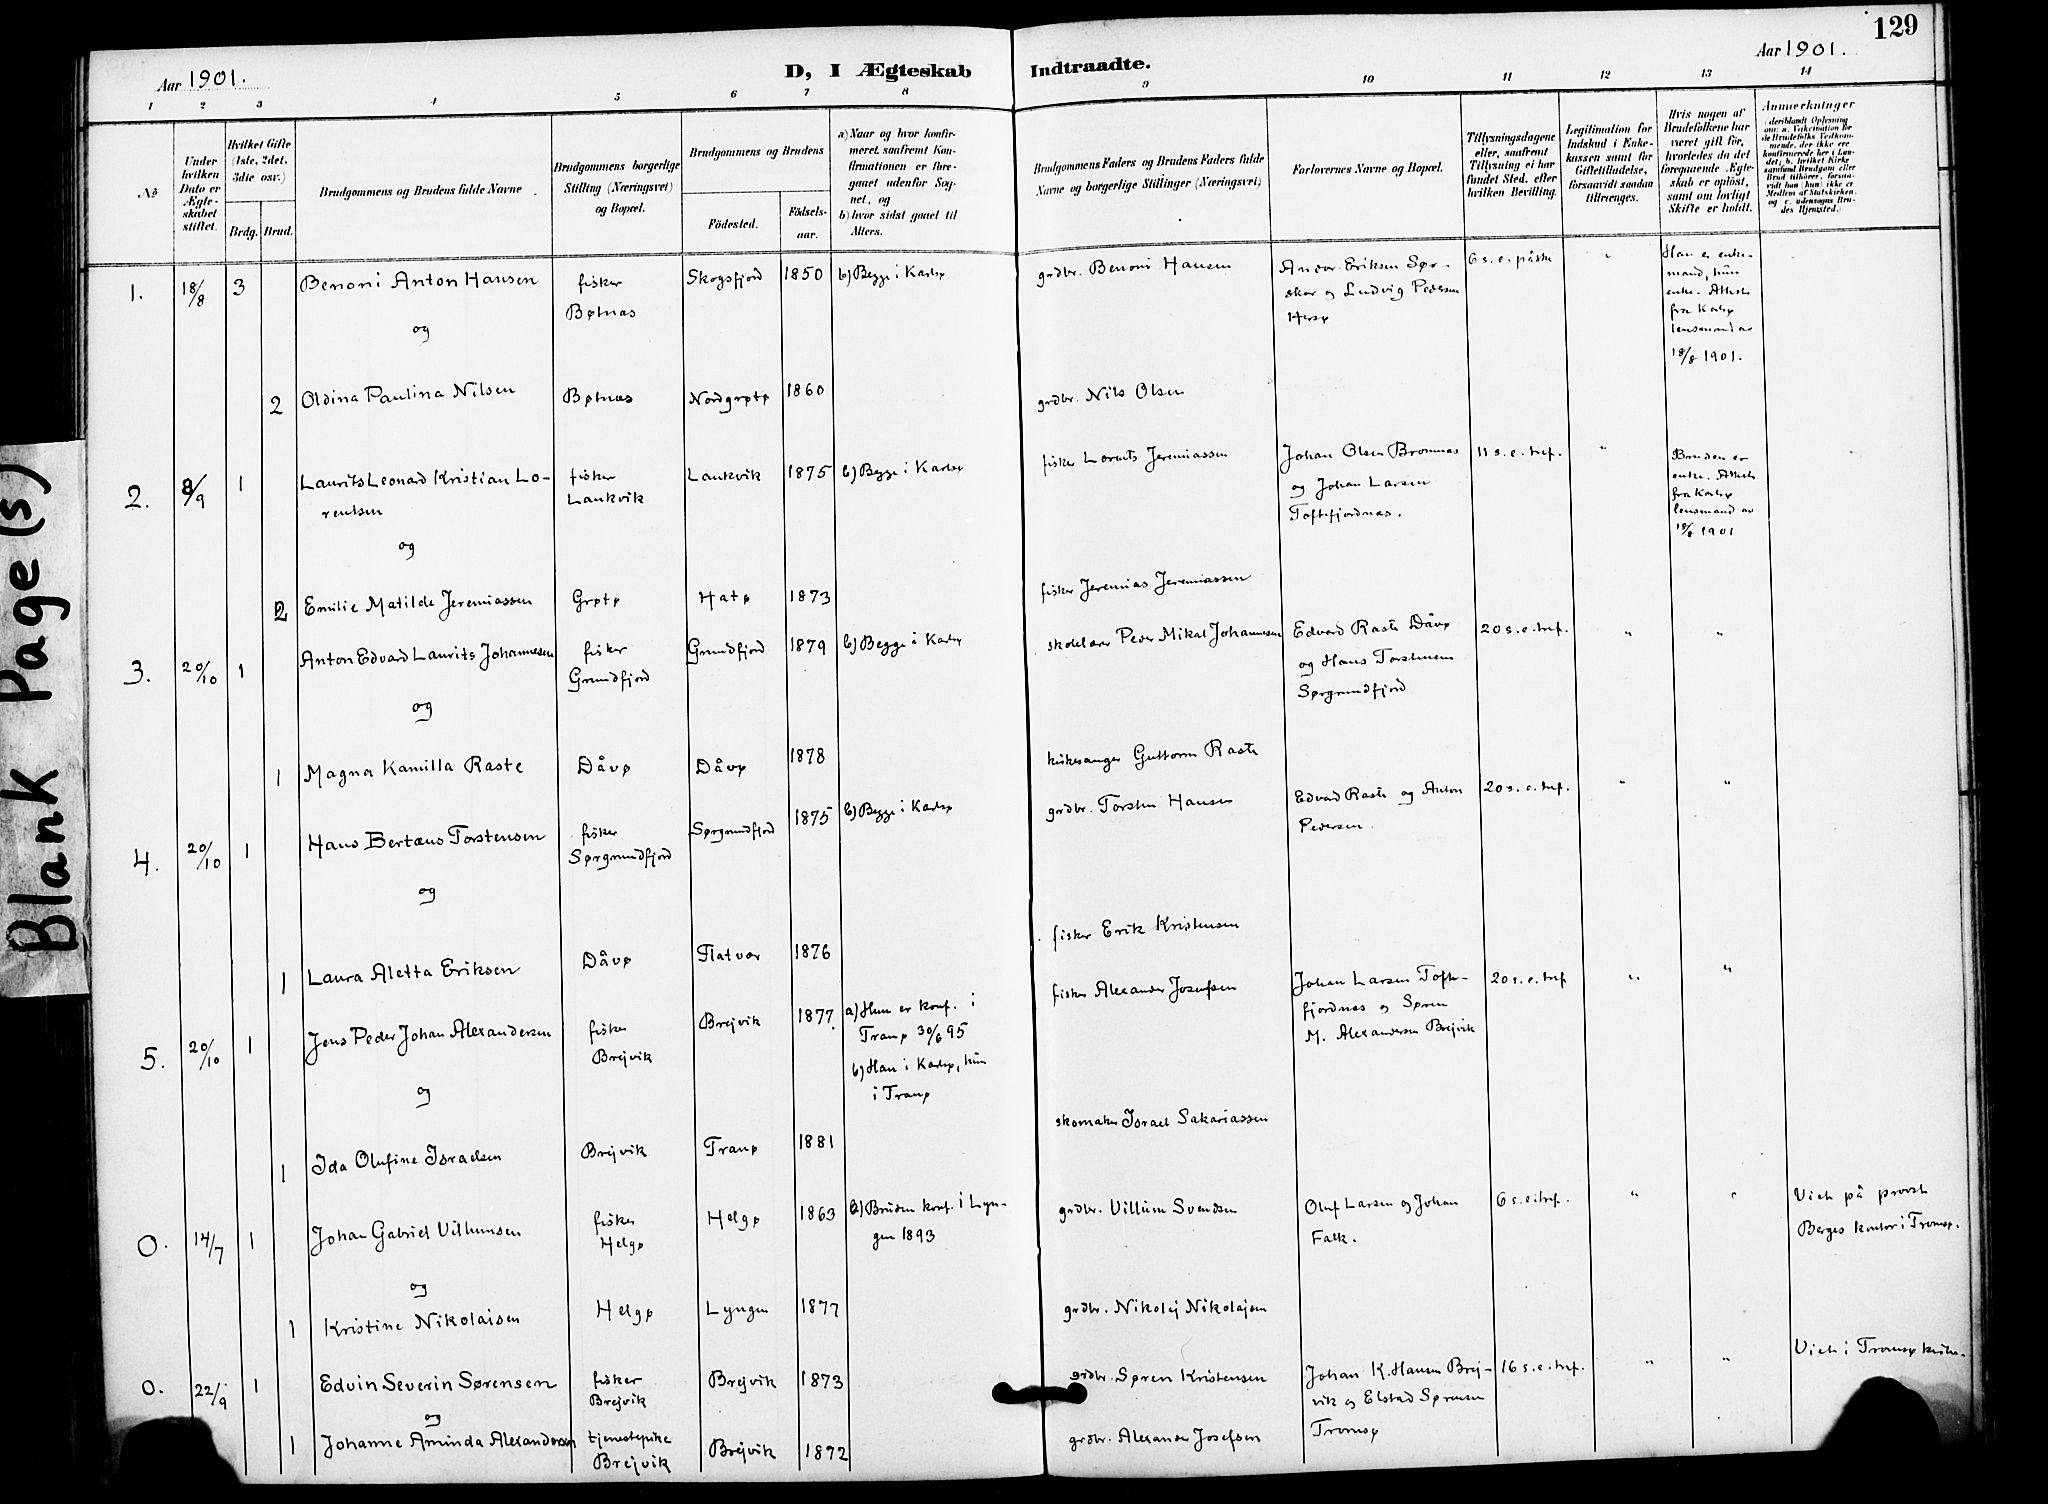 129
Aar 1901.
D, I Ægteskab Indtraadte.
Aar 1901.
1 2 3 4 5 6 7 8 9 10 11 12 13 14
No
Under hvilken Dato er Ægteskabet stiftet.
Hvilket Gifte (1ste, 2det, 3die osv.)
Brdg. Brud.
Brudgommens og Brudens fulde Navne.
Brudgommens borgerlige Stilling (Næringsvei) og Bopæl.
Brudgommens og Brudens
Födested. Födselsaar.
a) Naar og hvor konfirmeret, saafremt Konfirmationen er foregaaet udenfor Sognet, og
b) hvor sidst gaaet til Alters.
Brudgommens Faders og Brudens Faders fulde Navne og borgerlige Stillinger (Næringsvei)
Forlovernes Navne og Bopæl.
Tillysningsdagene eller, saafremt Tillysning ei har fundet Sted, efter hvilken Bevilling.
Legitimation for Indskud i Enkekassen samt for Giftetilladelse, forsaavidt saadan tiltrænges.
Hvis nogen af Brudefolkene har været gift för, hvorledes da det foregaaende Ægteskab er oplöst, samt om lovligt Skifte er holdt.
Anmærkninger (deriblandt Oplysning om: a. Vakcination for de Brudefolks Vedkommende, der ikke ere konfirmerede her i Landet; b. hvilket Kirkesamfund Brudgom eller Brud tilhörer, forsaavidt han (hun) ikke er Medlem af Statskirken, og c. udensogns Brudes Hjemsted.)
1. 18/8 3 Benoni Anton Hansen fisker Skogsfjord 1850 b) Begge i Karlsø grdbr. Benoni Hansen Andor Eriksen Sør- 6 s.e. påske " Han er enke-
Bøtnæs skar og Ludvig Pedersen mand, hun
og Hersø enke. Attest
fra Karlsø
lensmand av
18/8 1901.
2 Oldina Paulina Nilsen Bøtnæs Nordgrøtø 1860 grdbr. Nils Olsen
2. 8/9 1 Laurits Leonard Kristian Lo- fisker Lankvik 1875 b) Begge i Karlsø fisker Lorents Jeremiassen Johan Olsen Bromnæs 11 s.e. tref. " Bruden er
rentsen Lankvik og Johan Larsen enke. Attest
Toftefjordnæs. fra Karlsø
og lensmand av
18/8 1901
2 Emilie Matilde Jeremiassen Grøtø Hatø 1873 fisker Jeremias Jeremiassen
3. 20/10 1 Anton Edvard Laurits Johannesen fisker Grundfjord 1879 b) Begge i Karlsø skolelærer Peder Mikal Johannesen Edvard Raste Dåvø 20 s.e. tref. " "
Grundfjord og Hans Torstensen
og Sørgrundfjord
1 Magna Kamilla Raste Dåvø Dåvø 1878 kirkesanger Guttorm Raste
4. 20/10 1 Hans Bertæus Torstensen fisker Sørgrundfjord 1875 b) Begge i Karlsø grdbr. Torsten Hansen Edvard Raste og Anton 20 s.e. tref. " "
Sørgrundfjord Pedersen.
og
1 Laura Aletta Eriksen Dåvø Flatvær 1876 fisker Erik Kristensen
5. 20/10 1 Jens Peder Johan Alexandersen fisker Brejvik 1877. a) Hun er konf. i fisker Alexander Josefsen Johan Larsen Tofte- 20 s.e. tref " "
Brejvik Tranø 30/6 95 fjordnæs og Søren
b) Han i Karlsø, hun M. Alexandersen Brejvik
og i Tranø
1 Ida Olufine Israelsen Brejvik Tranø 1881 skomaker Israel Sakariassen
0. 14/7 1 Johan Gabriel Villumsen fisker Helgø 1863 a) Bruden konf. i Lyn- grdbr. Villum Svendsen Oluf Larsen og Johan 6 s.e. tref. " " Viet på provst
Helgø gen 1893 Falk. Berges kontor i Tromsø.
og
1 Kristine Nikolaisen Helgø Lyngen 1877 grdbr. Nikolej Nikolajsen
0. 22/9 1 Edvin Severin Sørensen fisker Brejvik 1873 grdbr. Søren Kristensen Johan K. Hansen Brej- 16 s.e. tref. " " Viet i Tromsø kirke.
Brejvik vik og Elstad Sørensen
og Tromsø
1 Johanne Aminda Alexandersen tjenestepike Brejvik 1872 grdbr. Alexander Josefsen
Brejvik
Blank Page(s)